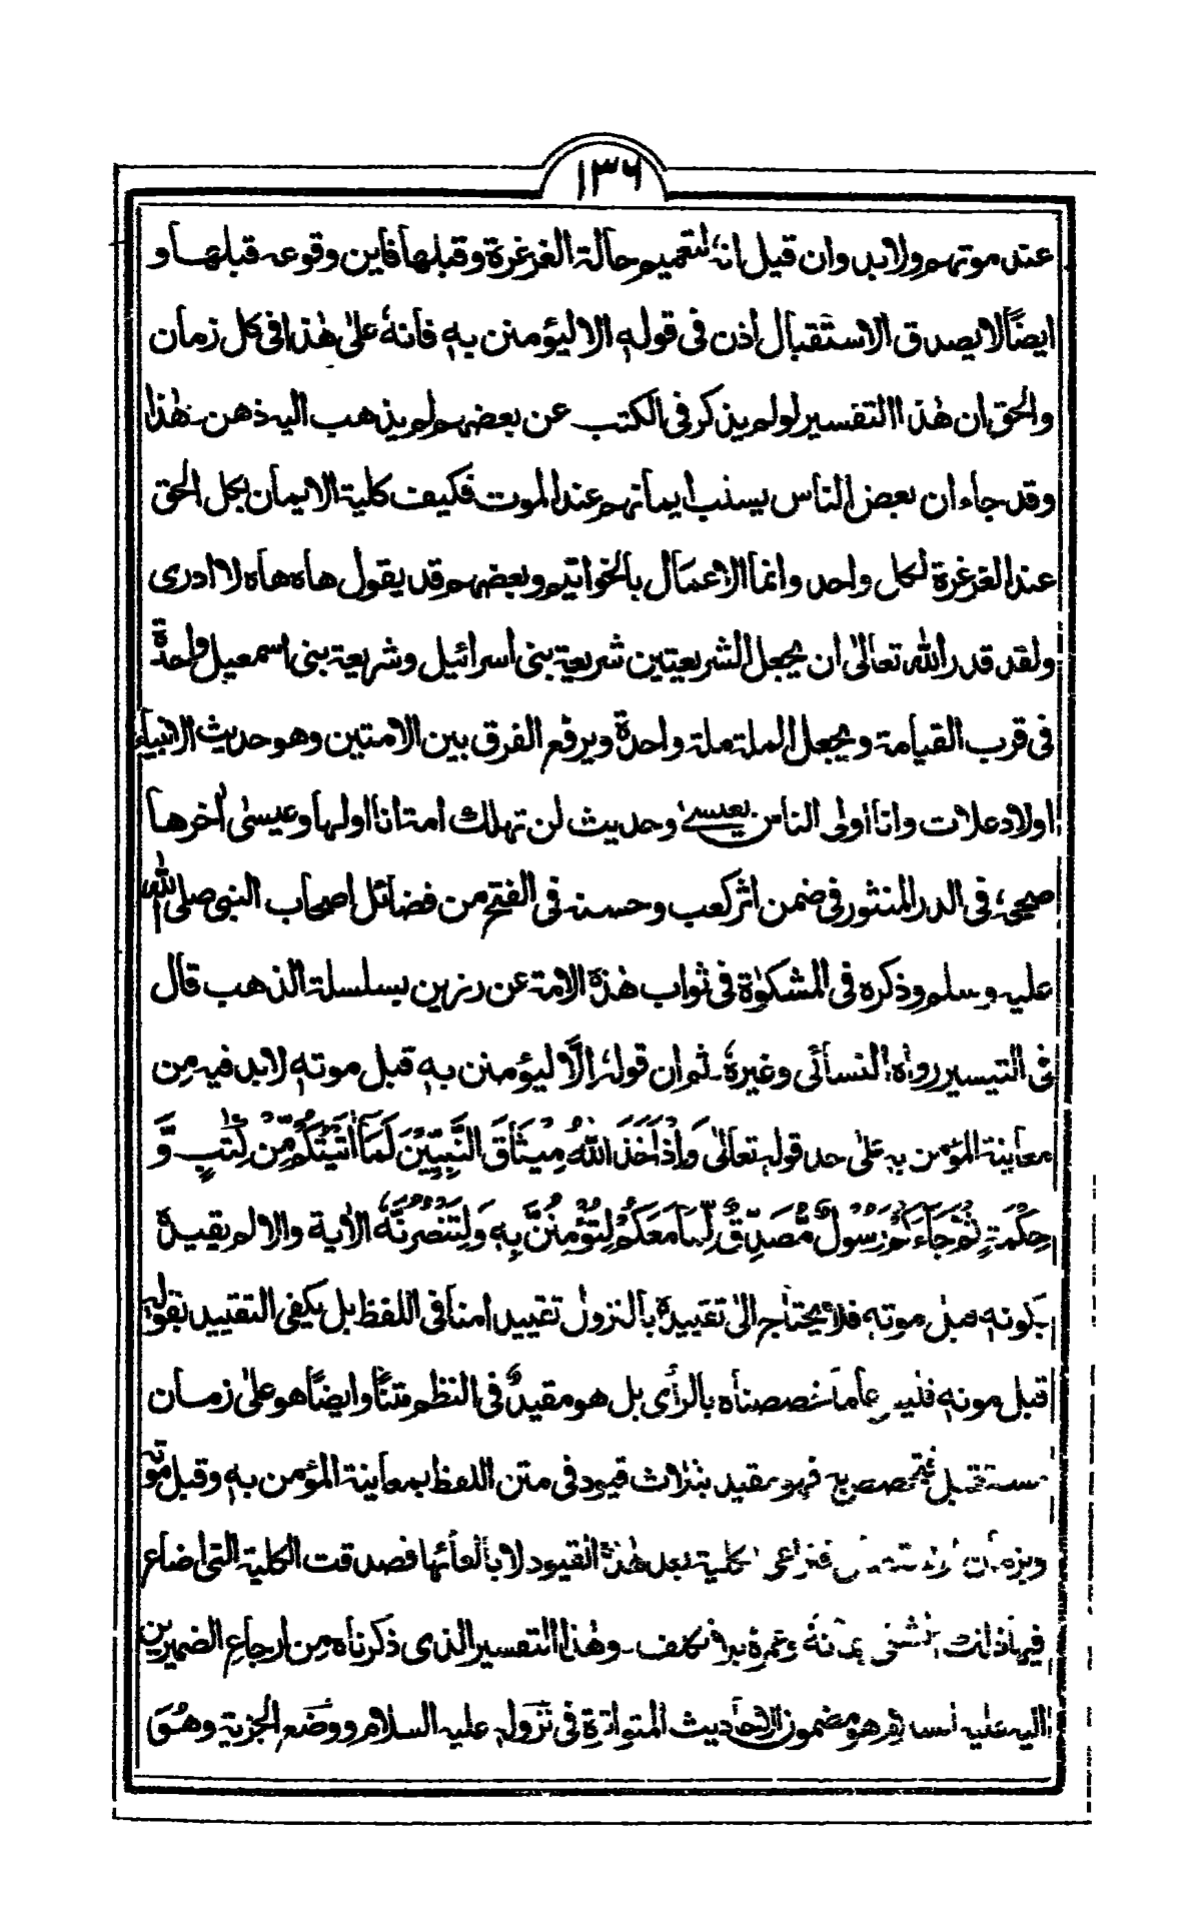 ١٣٦
عند موتهم ولا بد وان قيل انه لتعميم حالة الغرغرة وقبلها فاين وقوعه قبلها و
ايضاً لا يصدق الاستقبال اذن فى قوله الا ليؤمنن به فانهٗ على هٰذا فى كل زمان
والحق ان هٰذا التفسير لو لم يذكر فى الكتب عن بعضهم لم يذهب اليه ذهن۔ هٰذا
وقد جاء ان بعض الناس يسلب ايمانهم عند الموت فكيف كلية الايمان بكل الحق
عند الغرغرة لكل واحد وانما الاعمال بالخواتيم وبعضهم قد يقول هاه هاه لا ادرى
ولقد قدر الله تعالىٰ ان يجعل الشريعتين شريعة بنى اسرائيل وشريعة بنى اسمعيل واحدة
فى قرب القيامة ويجعل الملة ملة واحدة ويرفع الفرق بين الامتين وهو حديث الانبياء
اولاد علات وانا اولى الناس بعيسىٰ وحديث لن تهلك امة انا اولها وعيسىٰ اٰخرها
صحيح، فى الدر المنثور فى ضمن اثر كعب وحسنه فى الفتح من فضائل اصحاب النبى صلى الله
عليه وسلم وذكره فى المشكوٰة فى ثواب هٰذه الامة عن رزين بسلسلة الذهب قال
فى التيسير رواه النسائى وغيرهٗ۔ ثم ان قولهٗ اِلَّا ليؤمنن به قبل موته لا بد فيه مِن
معاينة المؤمن به على حد قوله تعالىٰ وَاِذْ اَخَذَ اللّٰهُ مِيْثَاقَ النَّبِيّٖنَ لَمَآ اٰتَيْتُكُمْ مِّنْ كِتٰبٍ وَّ
حِكْمَةٍ ثُمَّ جَآءَكُمْ رَسُوْلٌ مُّصَدِّقٌ لِّمَا مَعَكُمْ لَتُؤْمِنُنَّ بِهٖ وَلَتَنْصُرُنَّهٗ الاٰية والا لم يقيده
بكونه قبل موته فلا يحتاج الىٰ تقييده بالنزول تقييد امنا فى اللفظ بل يكفى التقييد بقوله
قبل موته فليس عاما خصصناه بالرأى بل هو مقيدٌ فى النظم متنًا وايضًا هو علىٰ زمان
مستقبل فهو مقيد بثلاث قيود فى متن اللفظ بمعاينة المؤمن به وقبل موته
الكلية بعد هٰذه القيود لا بالغائها فصدقت الكلية التى اضاع
فيها ذلك عمره بلا تكلف۔ وهٰذا التفسير الذى ذكرناه من ارجاع الضميرين
اليه عليه السلام هو مضمون الاحاديث المتواترة فى نزوله عليه السلام ووضع الجزية وهُوَ